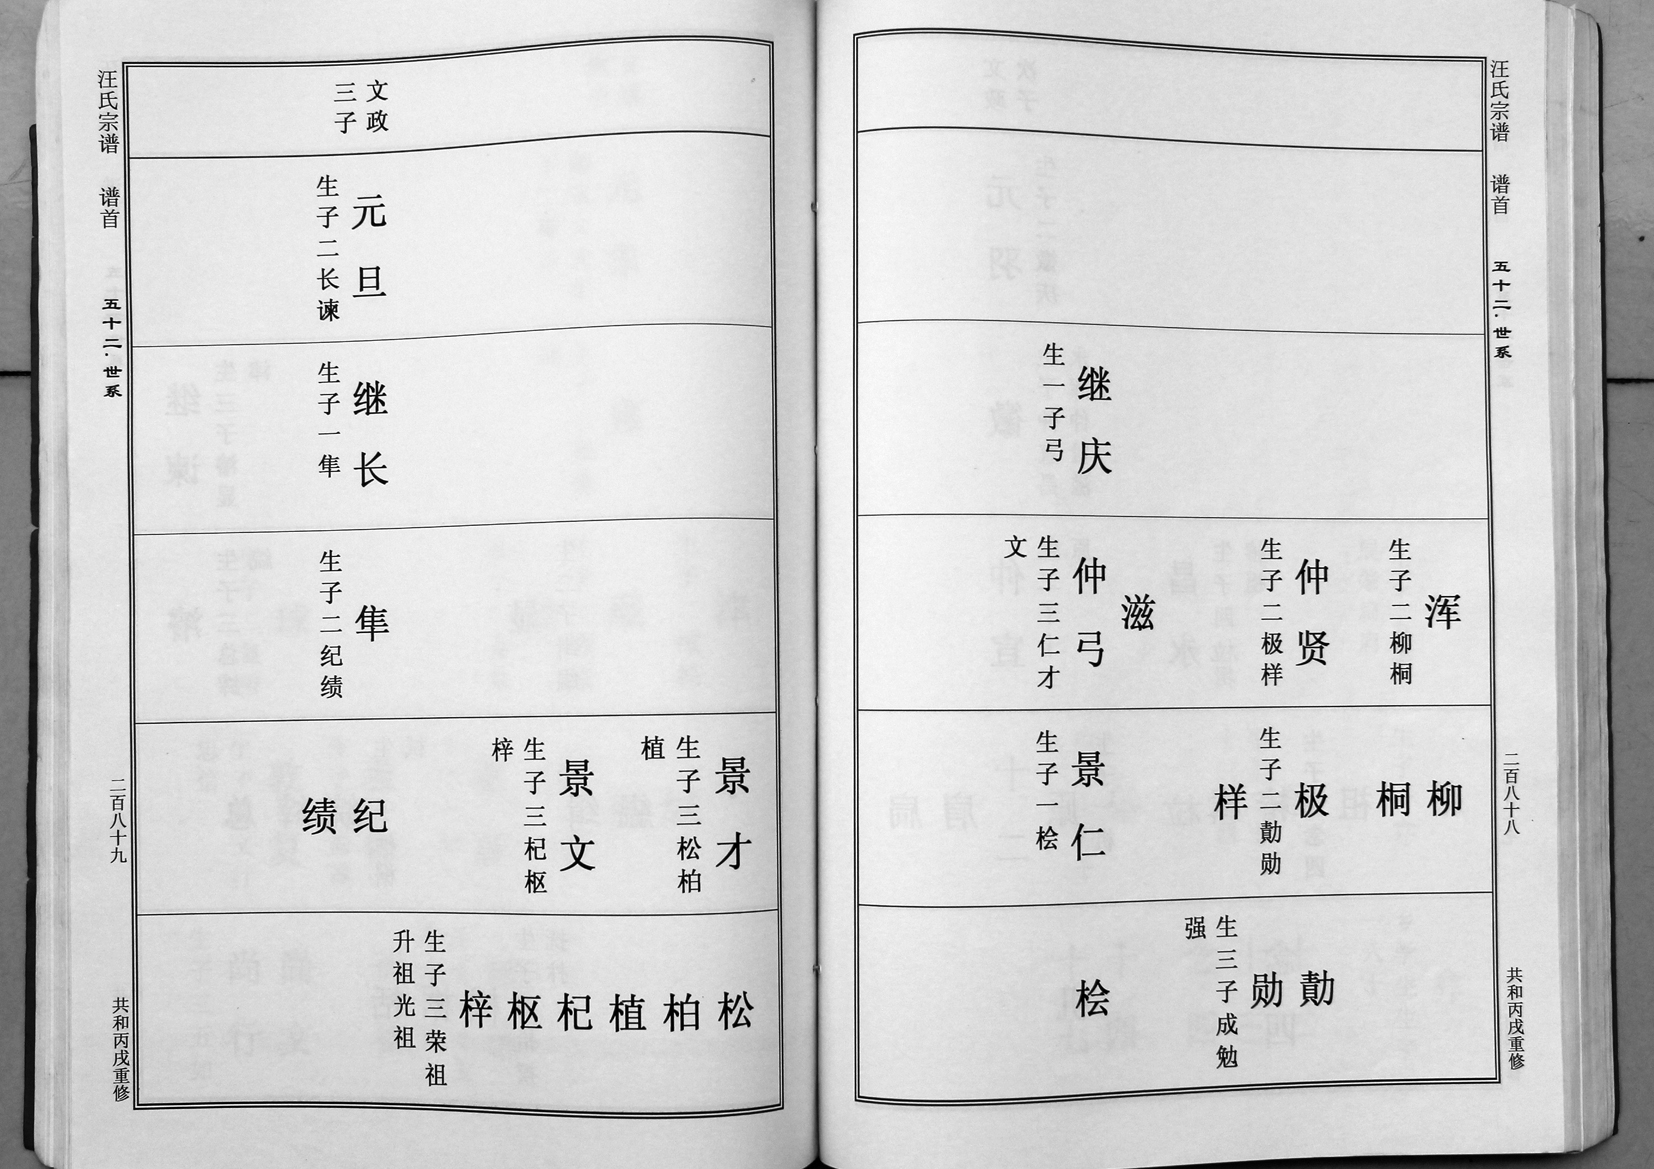 汪氏宗谱
谱首
五十二·世系
二百八十八
共和丙戌重修
继庆
生一子弓
浑
生子二柳桐
仲贤
生子二极样
滋
仲弓
生子三仁才
文
柳
桐
极
生子二勭勋
样
景仁
生子一桧
勭
勋
生三子成勉
强
桧
文政
三子
元旦
生子二长谏
继长
生子一隼
隼
生子二纪绩
景才
生子三松柏
植
景文
生子三杞枢
梓
纪
绩
松
柏
植
杞
枢
梓
生子三荣祖
升祖光祖
汪氏宗谱
谱首
五十二·世系
二百八十九
共和丙戌重修